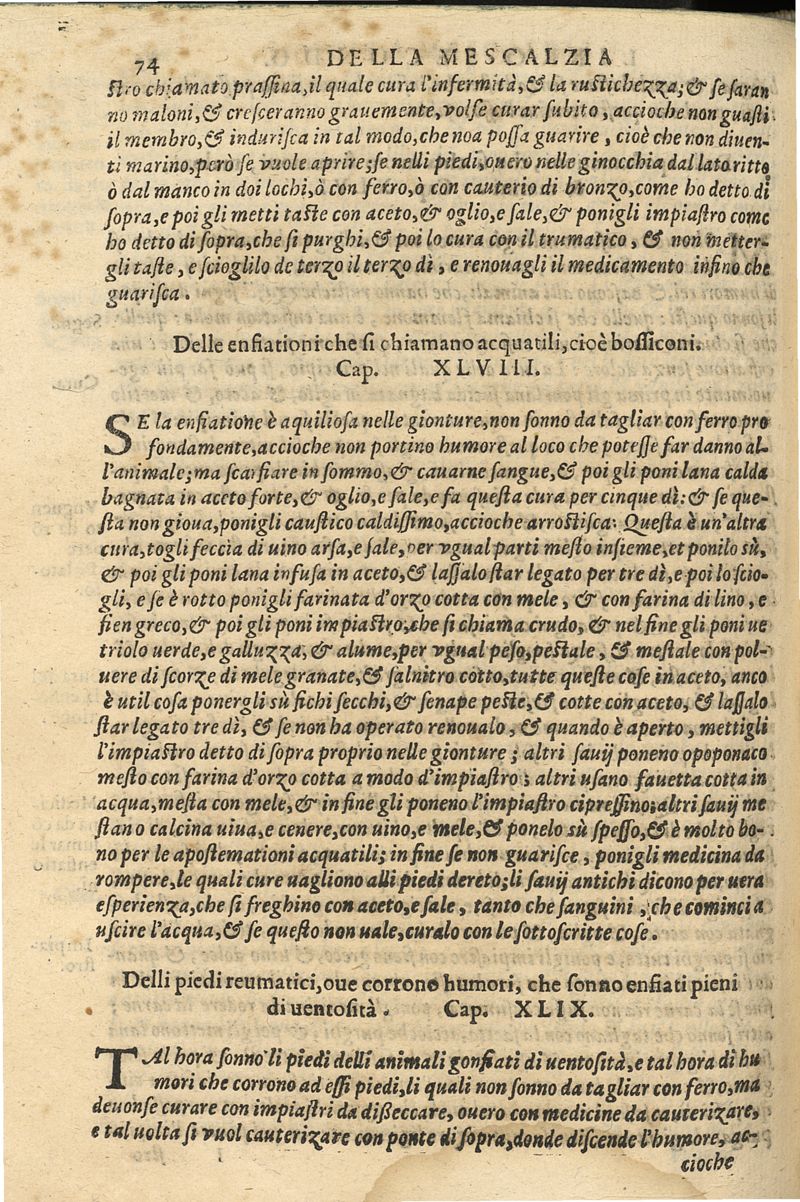 74 DELLA MESCALZIA
ſtro chiamato praſſina, il quale cura l'infermità, & la ruſtichezza; & ſe ſaran
no maloni, & creſceranno grauemente, volſe curar ſubito, accioche non guaſti
il membro, & induriſca in tal modo, che noa poſſa guarire, cioè che non diuen-
ti marino, però ſe vuole aprire; ſe nelli piedi, ouero nelle ginocchia dal lato ritto
ò dal manco in doi lochi, ò con ferro, ò con cauterio di bronzo, come ho detto di
ſopra, e poi gli metti taſte con aceto, & oglio, e ſale, & ponigli impiaſtro come
ho detto di ſopra, che ſi purghi, & poi lo cura con il trumatico, & non metter-
gli taſte, e ſcioglilo de terzo il terzo dì, e renouagli il medicamento inſino che
guariſca.
Delle enfiationi che ſi chiamano acquatili, cioè boſſiconi.
Cap. XLVIII.
SE la enfiatione è aquilioſa nelle gionture, non ſonno da tagliar con ferro pro
fondamente, accioche non portino humore al loco che poteſſe far danno al-
l'animale; ma ſcarfiare in ſommo, & cauarne ſangue, & poi gli poni lana calda
bagnata in aceto forte, & oglio, e ſale, e fa queſta cura per cinque dì: & ſe que-
ſta non gioua, ponigli cauſtico caldiſſimo, accioche arroſtiſca: Queſta è un'altra
cura, togli feccia di uino arſa, e ſale, per vgual parti meſto inſieme, et ponilo sù,
& poi gli poni lana infuſa in aceto, & laſſalo ſtar legato per tre dì, e poi lo ſcio-
gli, e ſe è rotto ponigli farinata d'orzo cotta con mele, & con farina di lino, e
fien greco, & poi gli poni impiaſtro, che ſi chiama crudo, & nel fine gli poni ue
triolo uerde, e galluzza, & alume, per vgual peſo, peſtale, & meſtale con pol-
uere di ſcorze di mele granate, & ſalnitro cotto, tutte queſte coſe in aceto, anco
è util coſa ponergli sù fichi ſecchi, & ſenape peſte, & cotte con aceto, & laſſalo
ſtar legato tre dì, & ſe non ha operato renoualo, & quando è aperto, mettigli
l'impiaſtro detto di ſopra proprio nelle gionture; altri ſauij poneno opoponaco
meſto con farina d'orzo cotta a modo d'impiaſtro; altri uſano fauetta cotta in
acqua, meſta con mele, & in fine gli poneno l'impiaſtro cipreſſino; altri ſauij me
ſtano calcina uiua, e cenere, con uino, e mele, & ponelo sù ſpeſſo, & è molto bo-
no per le apoſtemationi acquatili; in fine ſe non guariſce, ponigli medicina da
rompere, le quali cure uagliono alli piedi dereto; li ſauij antichi dicono per uera
eſperienza, che ſi freghino con aceto, e ſale, tanto che ſanguini, che comincia
uſcire l'acqua, & ſe queſto non uale, curalo con le ſottoſcritte coſe.
Delli piedi reumatici, oue corrono humori, che ſonno enfiati pieni
di uentoſità. Cap. XLIX.
TAl hora ſonno li piedi delli animali gonfiati di uentoſità, e tal hora di hu
mori che corrono ad eſſi piedi, li quali non ſonno da tagliar con ferro, ma
deuonſe curare con impiaſtri da diſſeccare, ouero con medicine da cauterizare,
e tal uolta ſi vuol cauterizare con ponte di ſopra, donde diſcende l'humore, ac-
cioche